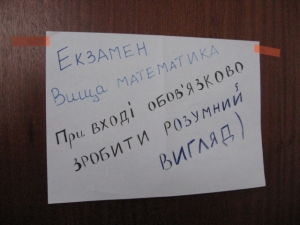 Екзамен
Вища математика
При вході обов'язково
зробити розумний
вигляд)